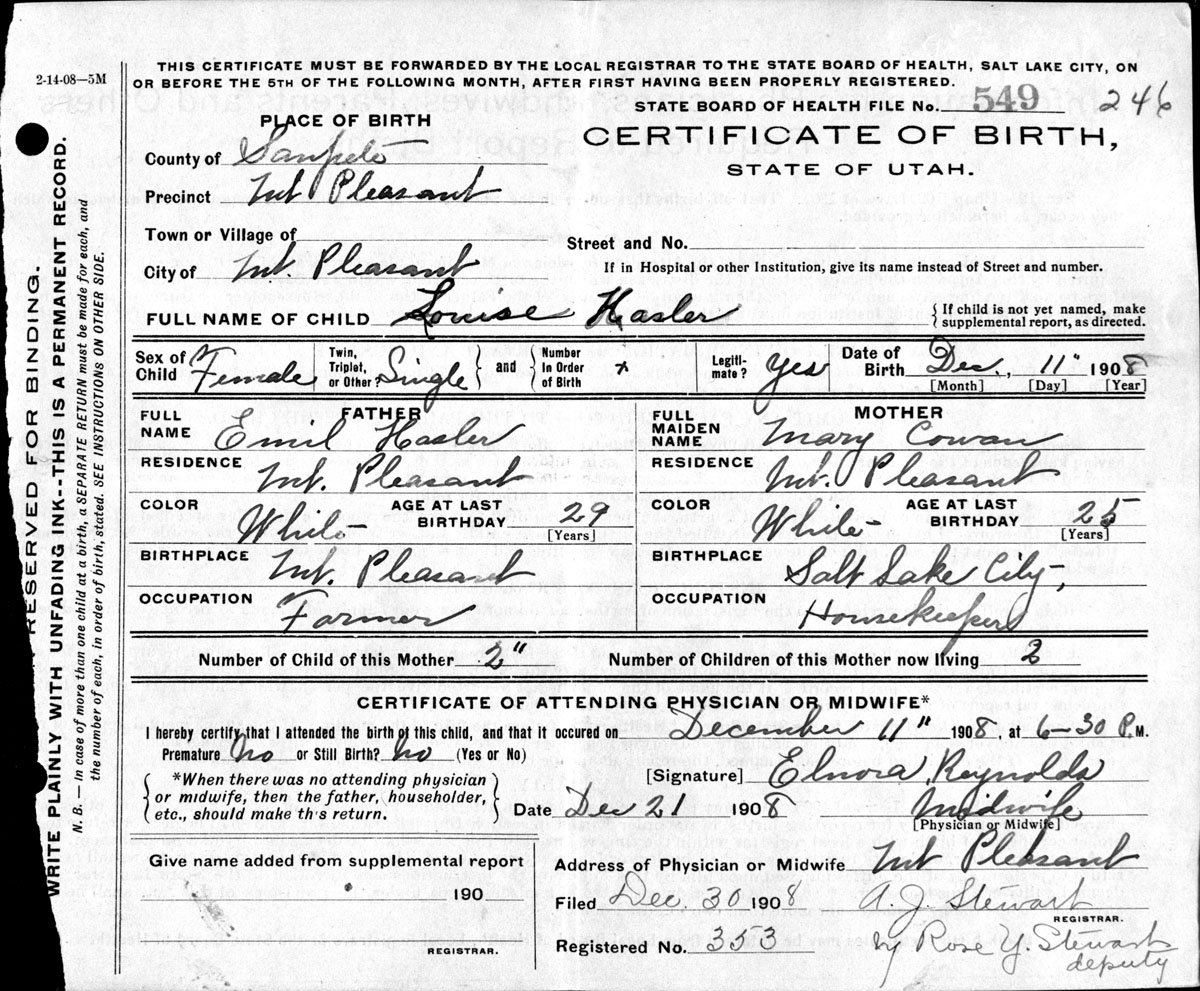 2-14-08—5M
THIS CERTIFICATE MUST BE FORWARDED BY THE LOCAL REGISTRAR TO THE STATE BOARD OF HEALTH, SALT LAKE CITY, ON
OR BEFORE THE 5TH OF THE FOLLOWING MONTH, AFTER FIRST HAVING BEEN PROPERLY REGISTERED.
STATE BOARD OF HEALTH FILE No. 549 246
PLACE OF BIRTH
CERTIFICATE OF BIRTH,
STATE OF UTAH.
County of Sanpete
Precinct Mt Pleasant
Town or Village of
Street and No.
City of Mt. Pleasant
If in Hospital or other Institution, give its name instead of Street and number.
FULL NAME OF CHILD Louise Hasler { If child is not yet named, make
supplemental report, as directed.
Sex of Child Female
Twin, Triplet, or Other? Single } and { Number In Order of Birth
Legiti-mate? Yes
Date of Birth Dec., 11" 1908
[Month] [Day] [Year]
FATHER
FULL NAME Emil Hasler
RESIDENCE Mt. Pleasant
COLOR White AGE AT LAST BIRTHDAY 29
[Years]
BIRTHPLACE Mt. Pleasant
OCCUPATION Farmer
MOTHER
FULL MAIDEN NAME Mary Cowan
RESIDENCE Mt. Pleasant
COLOR White AGE AT LAST BIRTHDAY 25
[Years]
BIRTHPLACE Salt Lake City,
OCCUPATION Housekeeper
Number of Child of this Mother 2" Number of Children of this Mother now living 2
CERTIFICATE OF ATTENDING PHYSICIAN OR MIDWIFE*
I hereby certify that I attended the birth of this child, and that it occured on December 11" 1908, at 6-30 P.M.
Premature? No or Still Birth? No (Yes or No)
*When there was no attending physician
or midwife, then the father, householder,
etc., should make this return.
[Signature] Elnora Reynolds
Date Dec 21 1908 Midwife
[Physician or Midwife]
Give name added from supplemental report
190
REGISTRAR.
Address of Physician or Midwife Mt Pleasant
Filed Dec. 30 1908 A. J. Stewart
REGISTRAR.
Registered No. 353 by Rose Y. Stewart
deputy
RESERVED FOR BINDING.
WRITE PLAINLY WITH UNFADING INK--THIS IS A PERMANENT RECORD.
N. B.—In case of more than one child at a birth, a SEPARATE RETURN must be made for each, and
the number of each, in order of birth, stated. SEE INSTRUCTIONS ON OTHER SIDE.